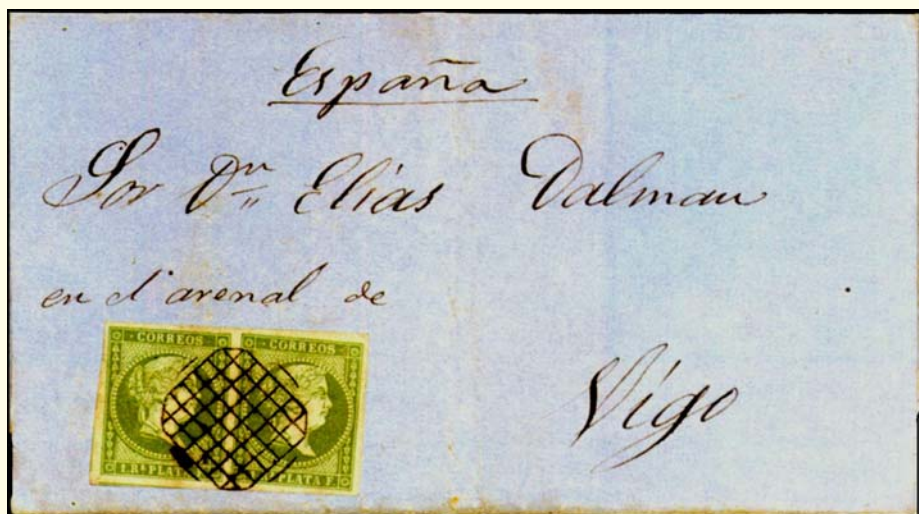 España
Sor Dn Elias Dalmau
en el arenal de
CORREOS CORREOS
Vigo
1 Rl PLATA PLATA F.